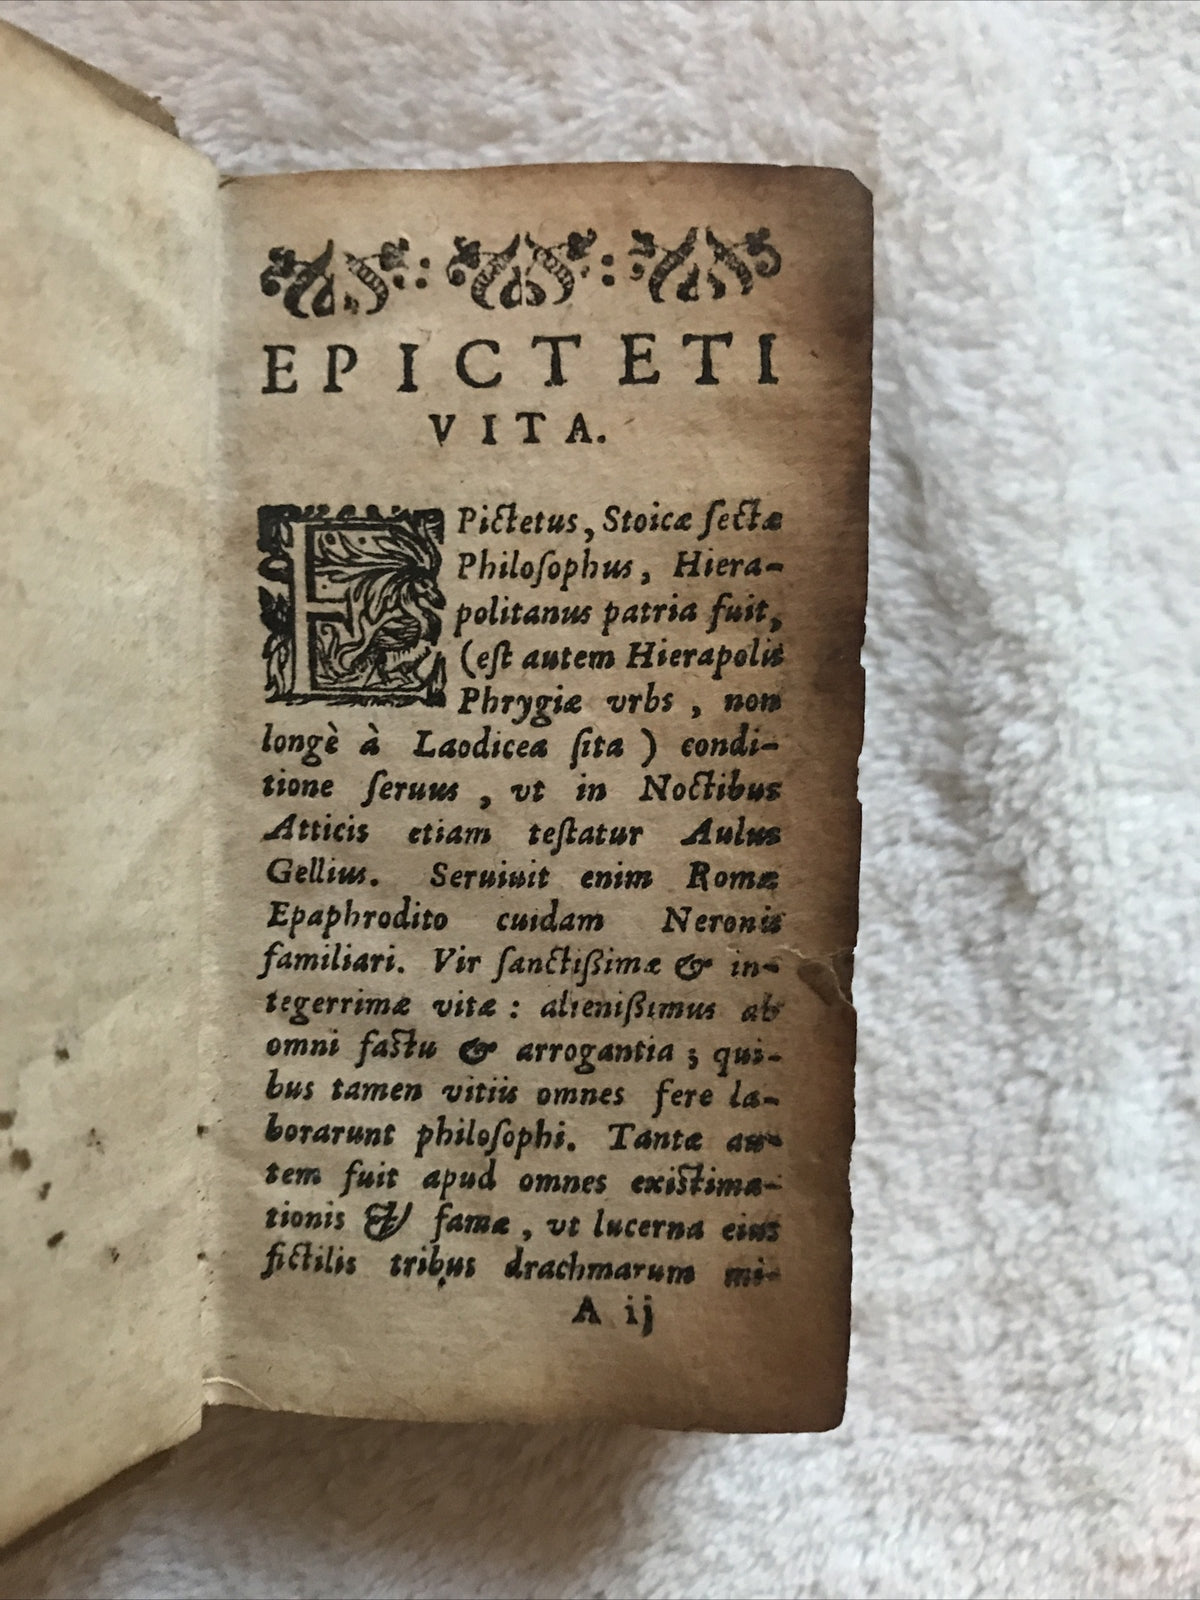 EPICTETI
VITA.
EPictetus, Stoicæ ſectæ
Philoſophus, Hiera-
politanus patria fuit,
(eſt autem Hierapolis
Phrygiæ vrbs, non
longè à Laodicea ſita) condi-
tione ſeruus, vt in Noctibus
Atticis etiam teſtatur Aulus
Gellius. Seruiuit enim Romæ
Epaphrodito cuidam Neronis
familiari. Vir ſanctißimæ & in-
tegerrimæ vitæ: alienißimus ab
omni faſtu & arrogantia; qui-
bus tamen vitiis omnes fere la-
borarunt philoſophi. Tantæ au-
tem fuit apud omnes exiſtima-
tionis & famæ, vt lucerna eius
fictilis tribus drachmarum mi-
A ij